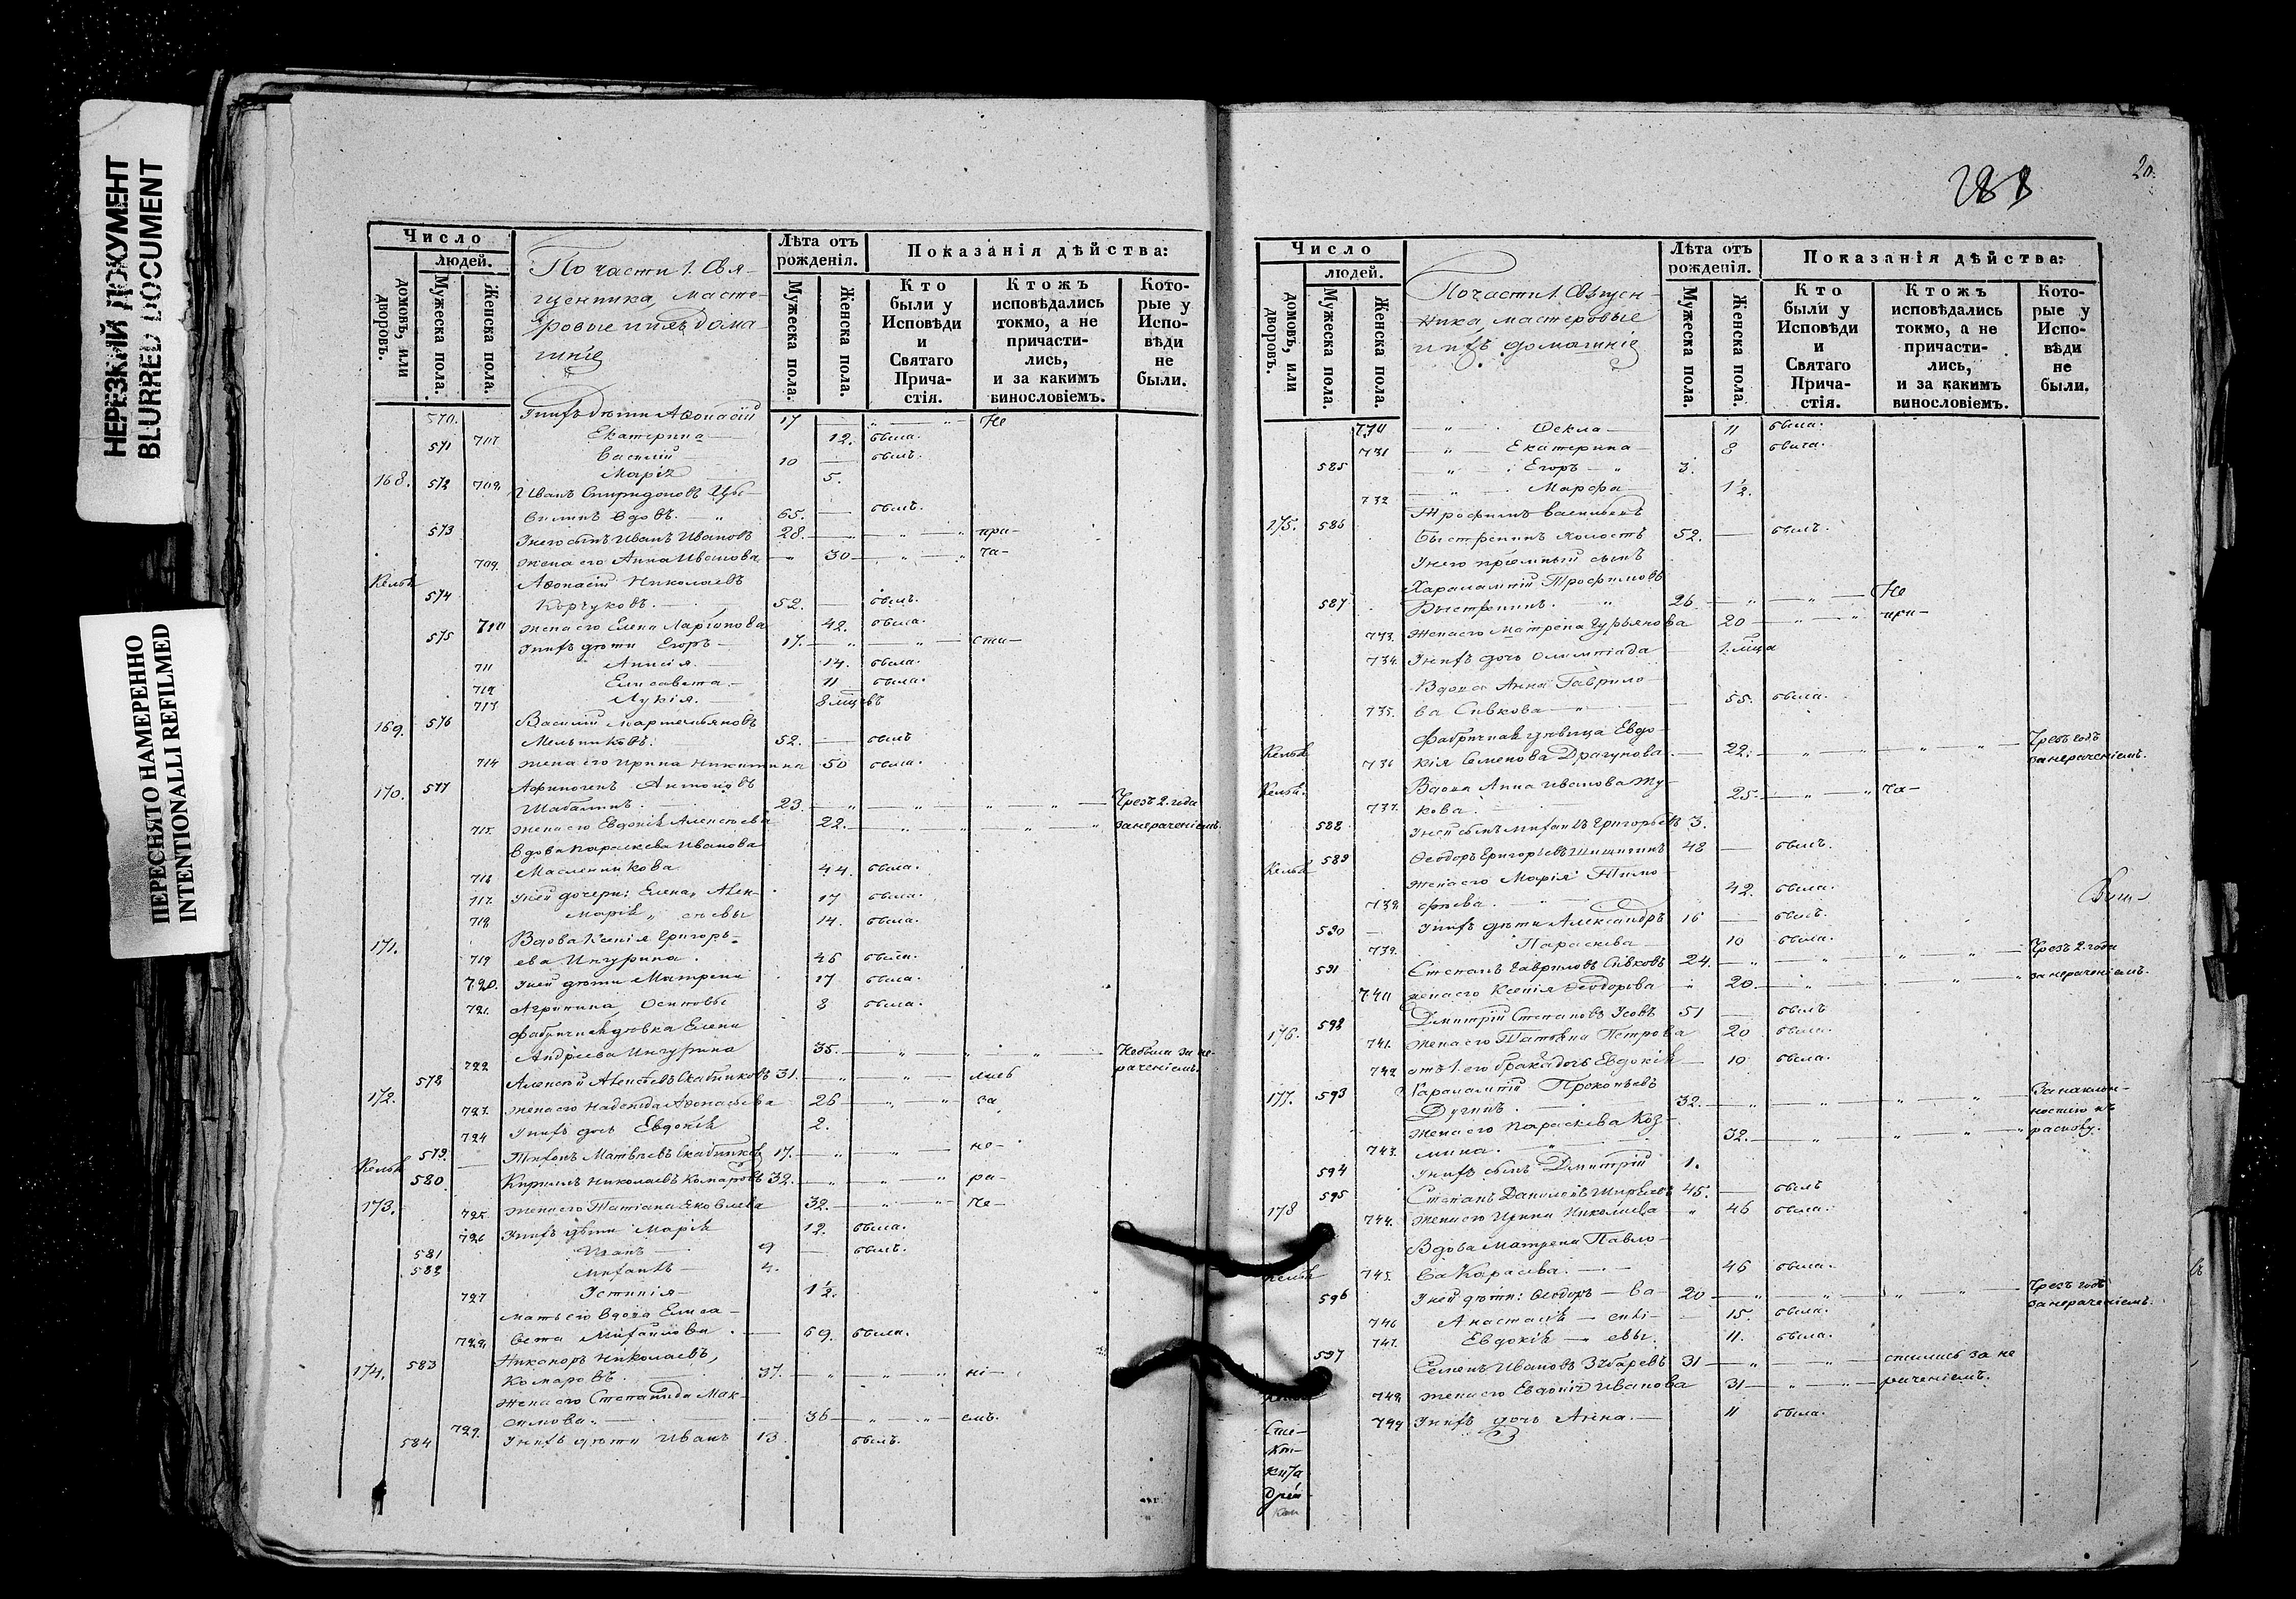 НЕРЕЗКИЙ ДОКУМЕНТ
BLURRED DOCUMENT
ПЕРЕСНЯТО НАМЕРЕННО
INTENTIONALLI REFILMED
Число
людей.
домовъ, или дворовъ.
Мужеска пола.
Женска пола.
По части 1. Свя-
щенника, масте-
ровые и ихъ дома-
шніе
Лѣта отъ рожденія.
Мужеска пола.
Женска пола.
Показанія дѣйства:
Кто были у Исповѣди и Святаго Прича-стія.
Ктожъ исповѣдались токмо, а не причасти-лись, и за какимъ винословіемъ.
Кото-рые у Испо-вѣди не были.
570. У нихъ дѣти Аѳонасій 17 — Не
707 Екатерина — 12. была.
571 Василій — 10 — былъ.
708. Марія 5.
168. 572 Иванъ Спиридоновъ
вдовъ. 65. — былъ.
573 У него сынъ Иванъ Ивановъ 28. — при-
709. Жена его Анна Иванова 30 — ча-
574 Аѳонасій Николаевъ
52. — былъ.
710 Жена его Елена Ларіонова 42. была.
575 У нихъ дѣти Егоръ — 17. — сти-
711 Анисія — 14. была.
712 Елисавета — 11 была.
713 Лукія — 8 мцовъ
169. 576 Василій Мартемьяновъ
Мельниковъ. 52. — былъ
714 Жена его Ирина Никитина 50 была.
170. 577 Афиногенъ Антоновъ
Шабалинъ. 23. — Чрезъ 2. года
715. Жена его Евдокія Алексѣева 22. — за нераченіемъ.
Вдова Параскева Иванова
716 Масленникова 44. была.
717. У ней дочери: Елена, Алек- 17 была.
718 Марія, сѣевы 14. была.
171. Вдова Ксенія Григорь-
719 ева 46 была.
720. У ней дѣти Матрена 17 была.
721. Агрипина, Осиповы 8 была.
Фабричная дѣвка Елена
722 Андреева 35. — Не была за не-
раченіемъ.
172. 578 Алексѣй Алексѣевъ 31. — лись
723. Жена его Надежда Аѳонасьева 26 — за
724 У нихъ дочь Евдокія 2.
579. Тихонъ Матвѣевъ 17. — не-
173. 580 Кирилъ Николаевъ Комаровъ 32. — ра-
725. Жена его Татіана Яковлева 32. — че-
726 У нихъ дѣти Марія 12. была.
581 Иванъ — 9 — былъ.
582 Михаилъ — 4.
727 Устинія — 1½.
Мать его вдова Елиса-
728. вета Михайлова. — 69. была.
174. 583 Никаноръ Николаевъ,
Комаровъ. 37. — ні-
Жена его Степанида Мак-
729. симова. — 36 — емъ.
584 У нихъ дѣти Иванъ 13 былъ.
20.
Число
людей.
домовъ, или дворовъ.
Мужеска пола.
Женска пола.
По части 1. Священ-
ника, мастеровые
и ихъ домашніе
Лѣта отъ рожденія.
Мужеска пола.
Женска пола.
Показанія дѣйства:
Кто были у Исповѣди и Святаго Прича-стія.
Ктожъ исповѣдались токмо, а не причасти-лись, и за какимъ винословіемъ.
Кото-рые у Испо-вѣди не были.
730 Ѳекла — 11 была.
731 Екатерина — 8 была.
585 Егоръ — 3.
732 Марфа — 1½.
175. 586 Трофимъ Васильевъ
холостъ 52. — былъ.
У него пріемный сынъ
Харалампій Трофимовъ
587 26 — Не
733. Жена его Матрена Гурьянова 20 — при-
734. У нихъ дочь Олимпіада
Вдова Анна Гаврило-
735. ва Сивкова — 55. была.
Фабричная дѣвица Евдо-
736 кія Семенова Драгунова. — 22. — Чрезъ годъ
за нераченіемъ.
Вдова Анна Иванова Жу-
737. кова. 25. — ча-
588 У ней сынъ Михаилъ Григорьевъ 3.
589 Ѳеодоръ Григорьевъ 48 — былъ.
Жена его Марія Тимо-
738. феева. 42. была.
590 У нихъ дѣти Александръ 16 — былъ.
739. Параскева — 10 была.
591 Степанъ Гавриловъ Сивковъ 24. — Чрезъ 2. года
740 Жена его Ксенія Ѳеодорова 20. — за нераченіемъ.
176. 592 Дмитрій Степановъ Усовъ 51 — былъ
741. Жена его Татіана Петрова 20 была.
742 отъ 1. его брака дочь Евдокія 10 была.
177. 593 Харалампій Прокопьевъ
32. — За наклон-
Жена его Параскева Коз- ностію къ
743. мина. 32. — расколу.
594 У нихъ сынъ Дмитрій 1.
178 595 Степанъ Даниловъ 45. — былъ
744. Жена его Ирина Николаева 46 была.
Вдова Матрена Павло-
745. ва Карасева. — 46 была.
596 У ней дѣти: Ѳеодоръ — 20 — Чрезъ годъ
746 Анастасія — 15. была. за нераченіемъ.
747. Евдокія — евы. 11. была.
597 Семенъ Ивановъ 31 — стились за не
748. Жена его Евдокія Иванова 31 — раченіемъ.
749 У нихъ дочь Анна. — 11 была.